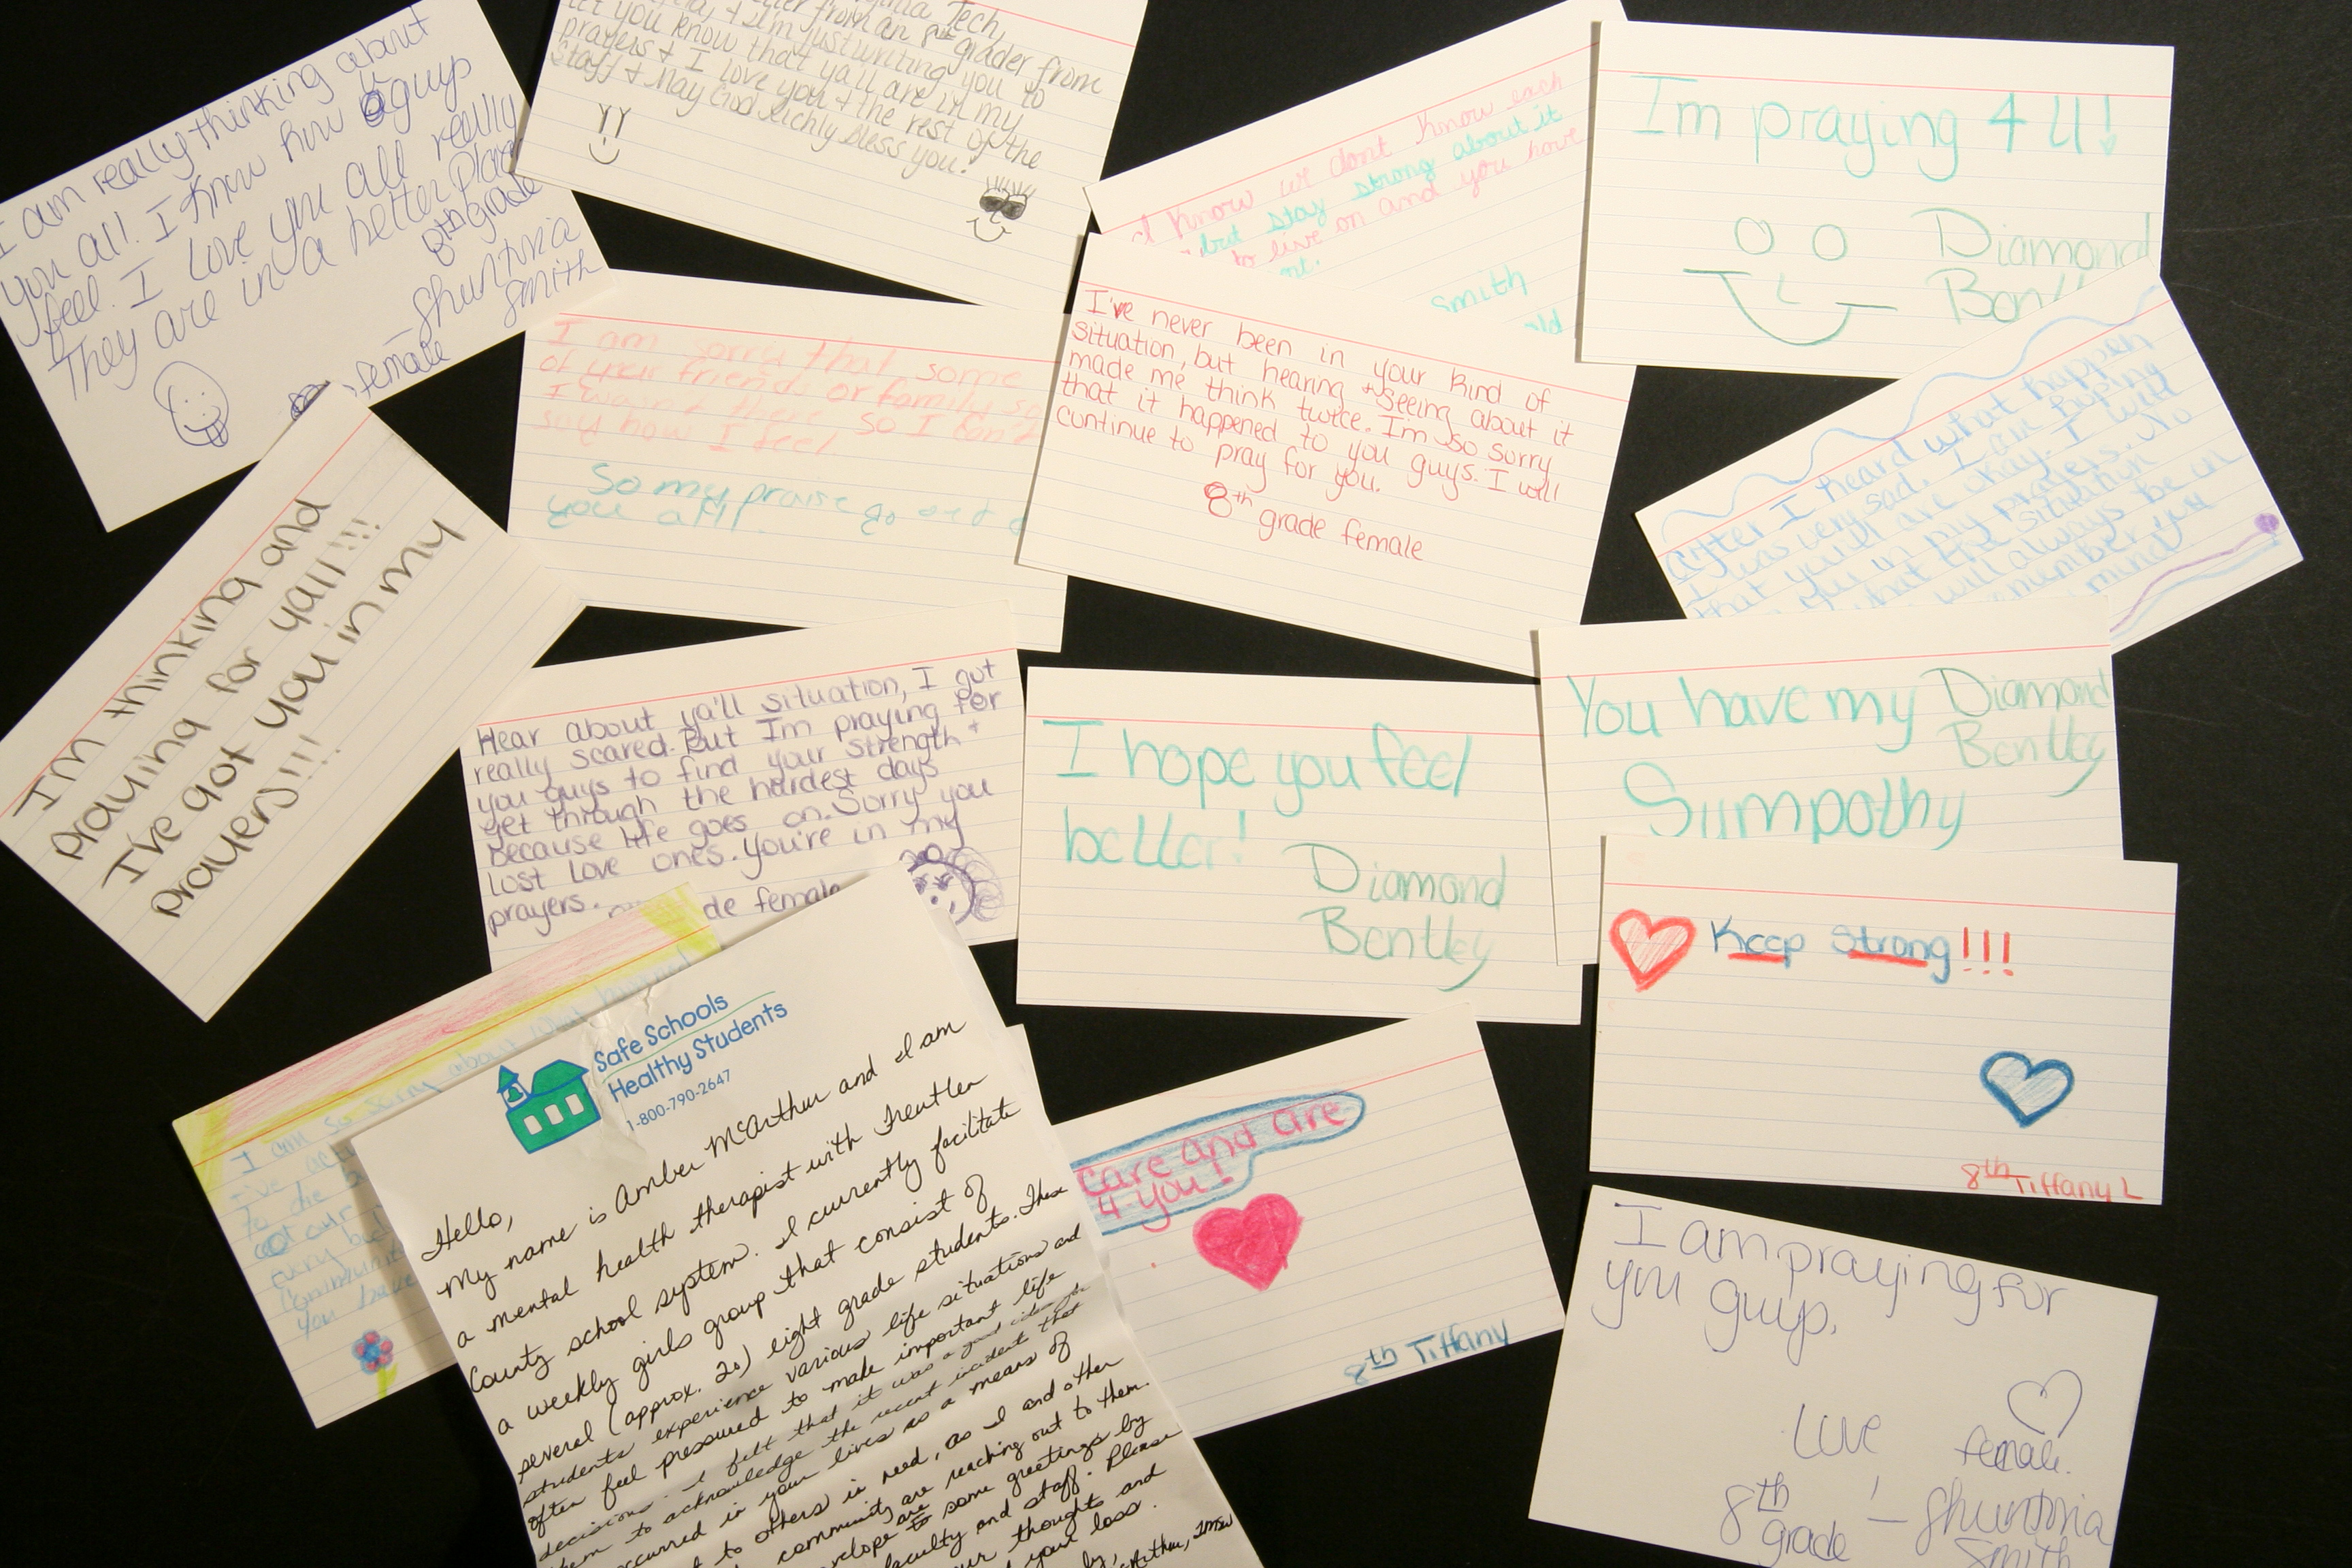 I am really thinking about
you all. I know how guys
feel. I love you all really
They are in a better place
8th grade
- Shuntoia
Smith
female
Tech,
from an 8th grader from
, & I'm just writing you to
let you know that yall are in my
prayers & I love you & the rest of the
Staff & May God Richly Bless you!
I know we dont know each
but stay strong about it
to live on and you have
Smith
Im praying 4 U!
Diamond
I am sorry that some
of your friends or family
I wasn't there so I can't
say how I feel.
So my praise go out
you all!
I've never been in your kind of
situation, but hearing & seeing about it
made me think twice. I'm so sorry
that it happened to you guys. I will
continue to pray for you.
8th grade female
After I heard what happen
I was very sad. I am hoping
that you'll are okay. I will
you in my prayers. No
what the situation
will always be in
mind
I'm thinking and
praying for yall!!!
I've got you in my
prayers!!!
Hear about ya'll situation, I got
really scared. But Im praying for
you guys to find your strength &
get through the hardest days
because life goes on. Sorry you
lost love ones. You're in my
prayers.
de female
I hope you feel
better!
Diamond
Bentley
You have my
Diamond
Bentley
Sympathy
Keep Strong!!!
8th Tiffany L
I am so sorry about what
I've
to the
every
communit
you have
Safe Schools
Healthy Students
1-800-790-2647
Hello,
My name is Amber McArthur and I am
a mental health therapist with Treutlen
County school system. I currently facilitate
a weekly girls group that consist of
several (approx. 20) eight grade students. These
students experience various life situations and
often feel pressured to make important life
decisions. I felt that it was a good idea for
them to acknowledge the recent incident that
occurred in your lives as a means of
to others in need, as I and other
community are reaching out to them.
are some greetings by
faculty and staff. Please
our thoughts and
your loss.
Arthur, LMSW
care and are
4 you!
8th Tiffany
I am praying for
you guys.
Love
female.
8th
grade
- Shuntoia
Smith